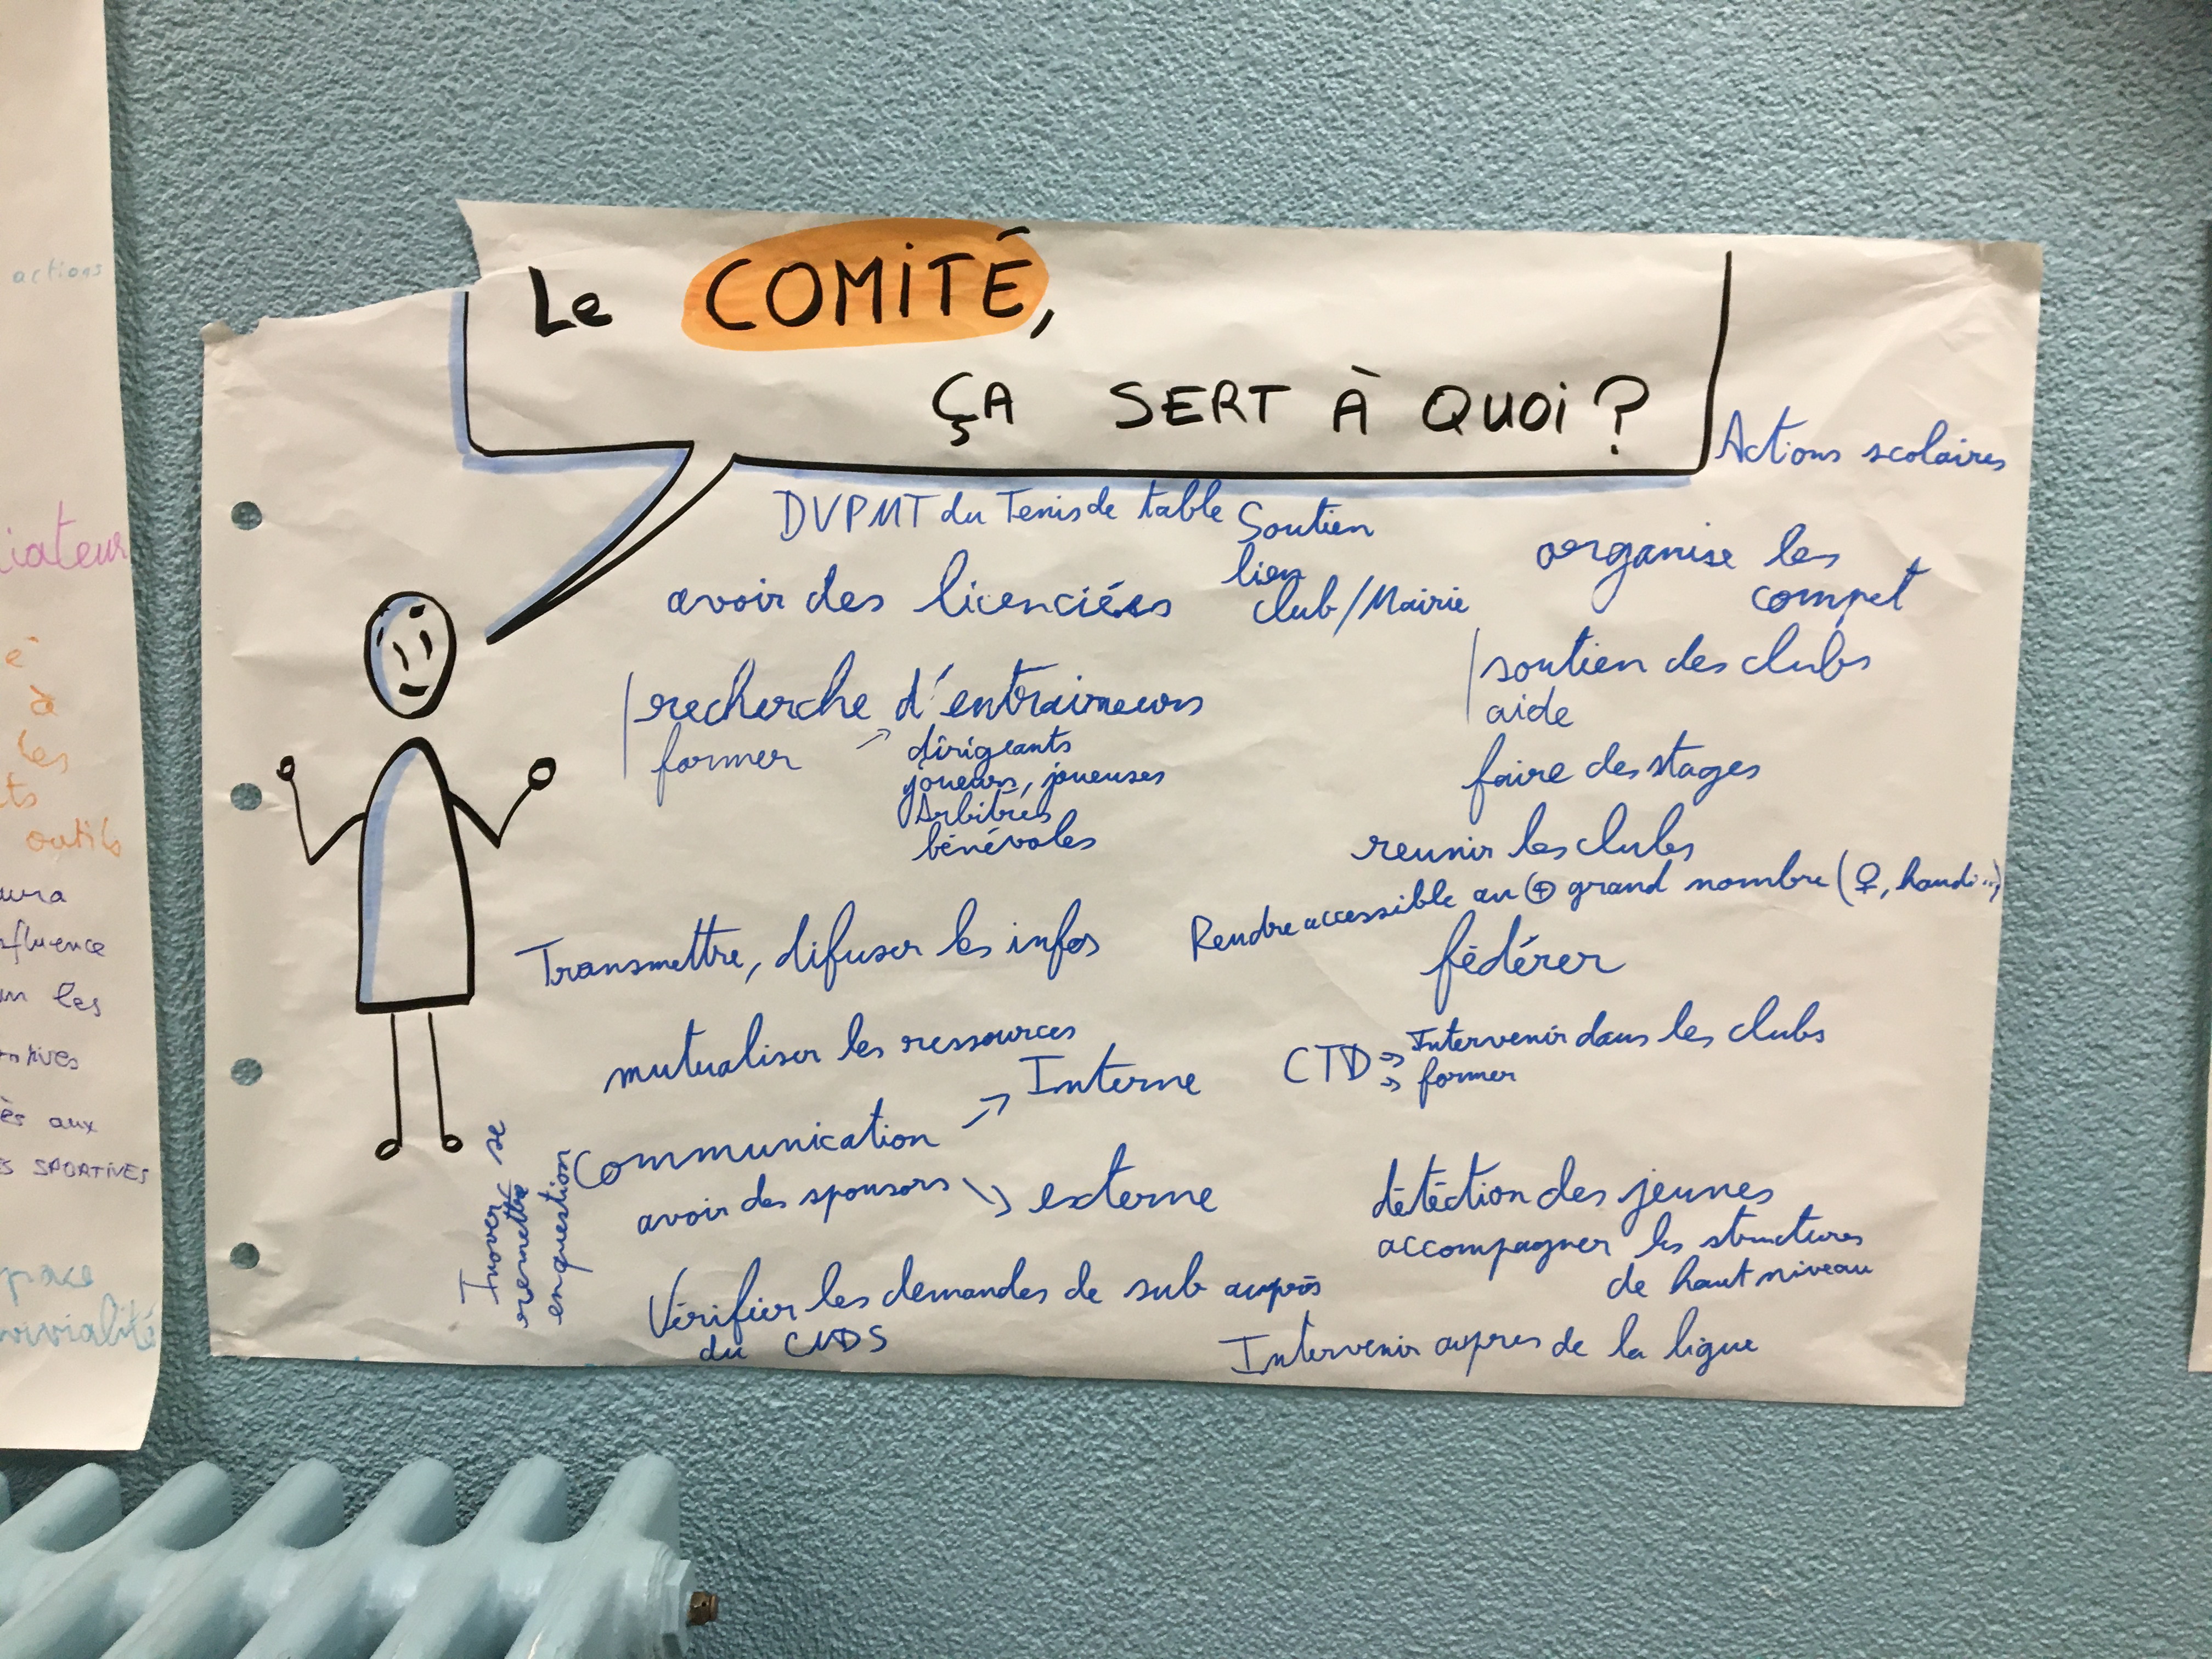 Le COMiTÉ,
ÇA SERT À QUOi ?
Actions scolaires
DVPMT du Tenis de table
Soutien
lien
club/Mairie
organise les
compet
avoir des licenciées
soutien des clubs
aide
recherche d'entraineurs
former
dirigeants
joueurs, joueuses
Arbitres
bénévoles
faire des stages
reunir les clubs
Rendre accessible au ⊕ grand nombre (♀, handi...)
Transmettre, difuser les infos
fédérer
mutualiser les ressources
CTD → Intervenir dans les clubs
→ former
Communication ↗ Interne
↘ externe
avoir des sponsors
Inover, se
remettre
en question
détéction des jeunes
accompagner les structures
de haut niveau
Vérifier les demandes de sub auprès
du CNDS
Intervenir aupres de la ligue
actions
iateur
é
à
les
ts
outils
fluence
les
aux
SPORTIVES